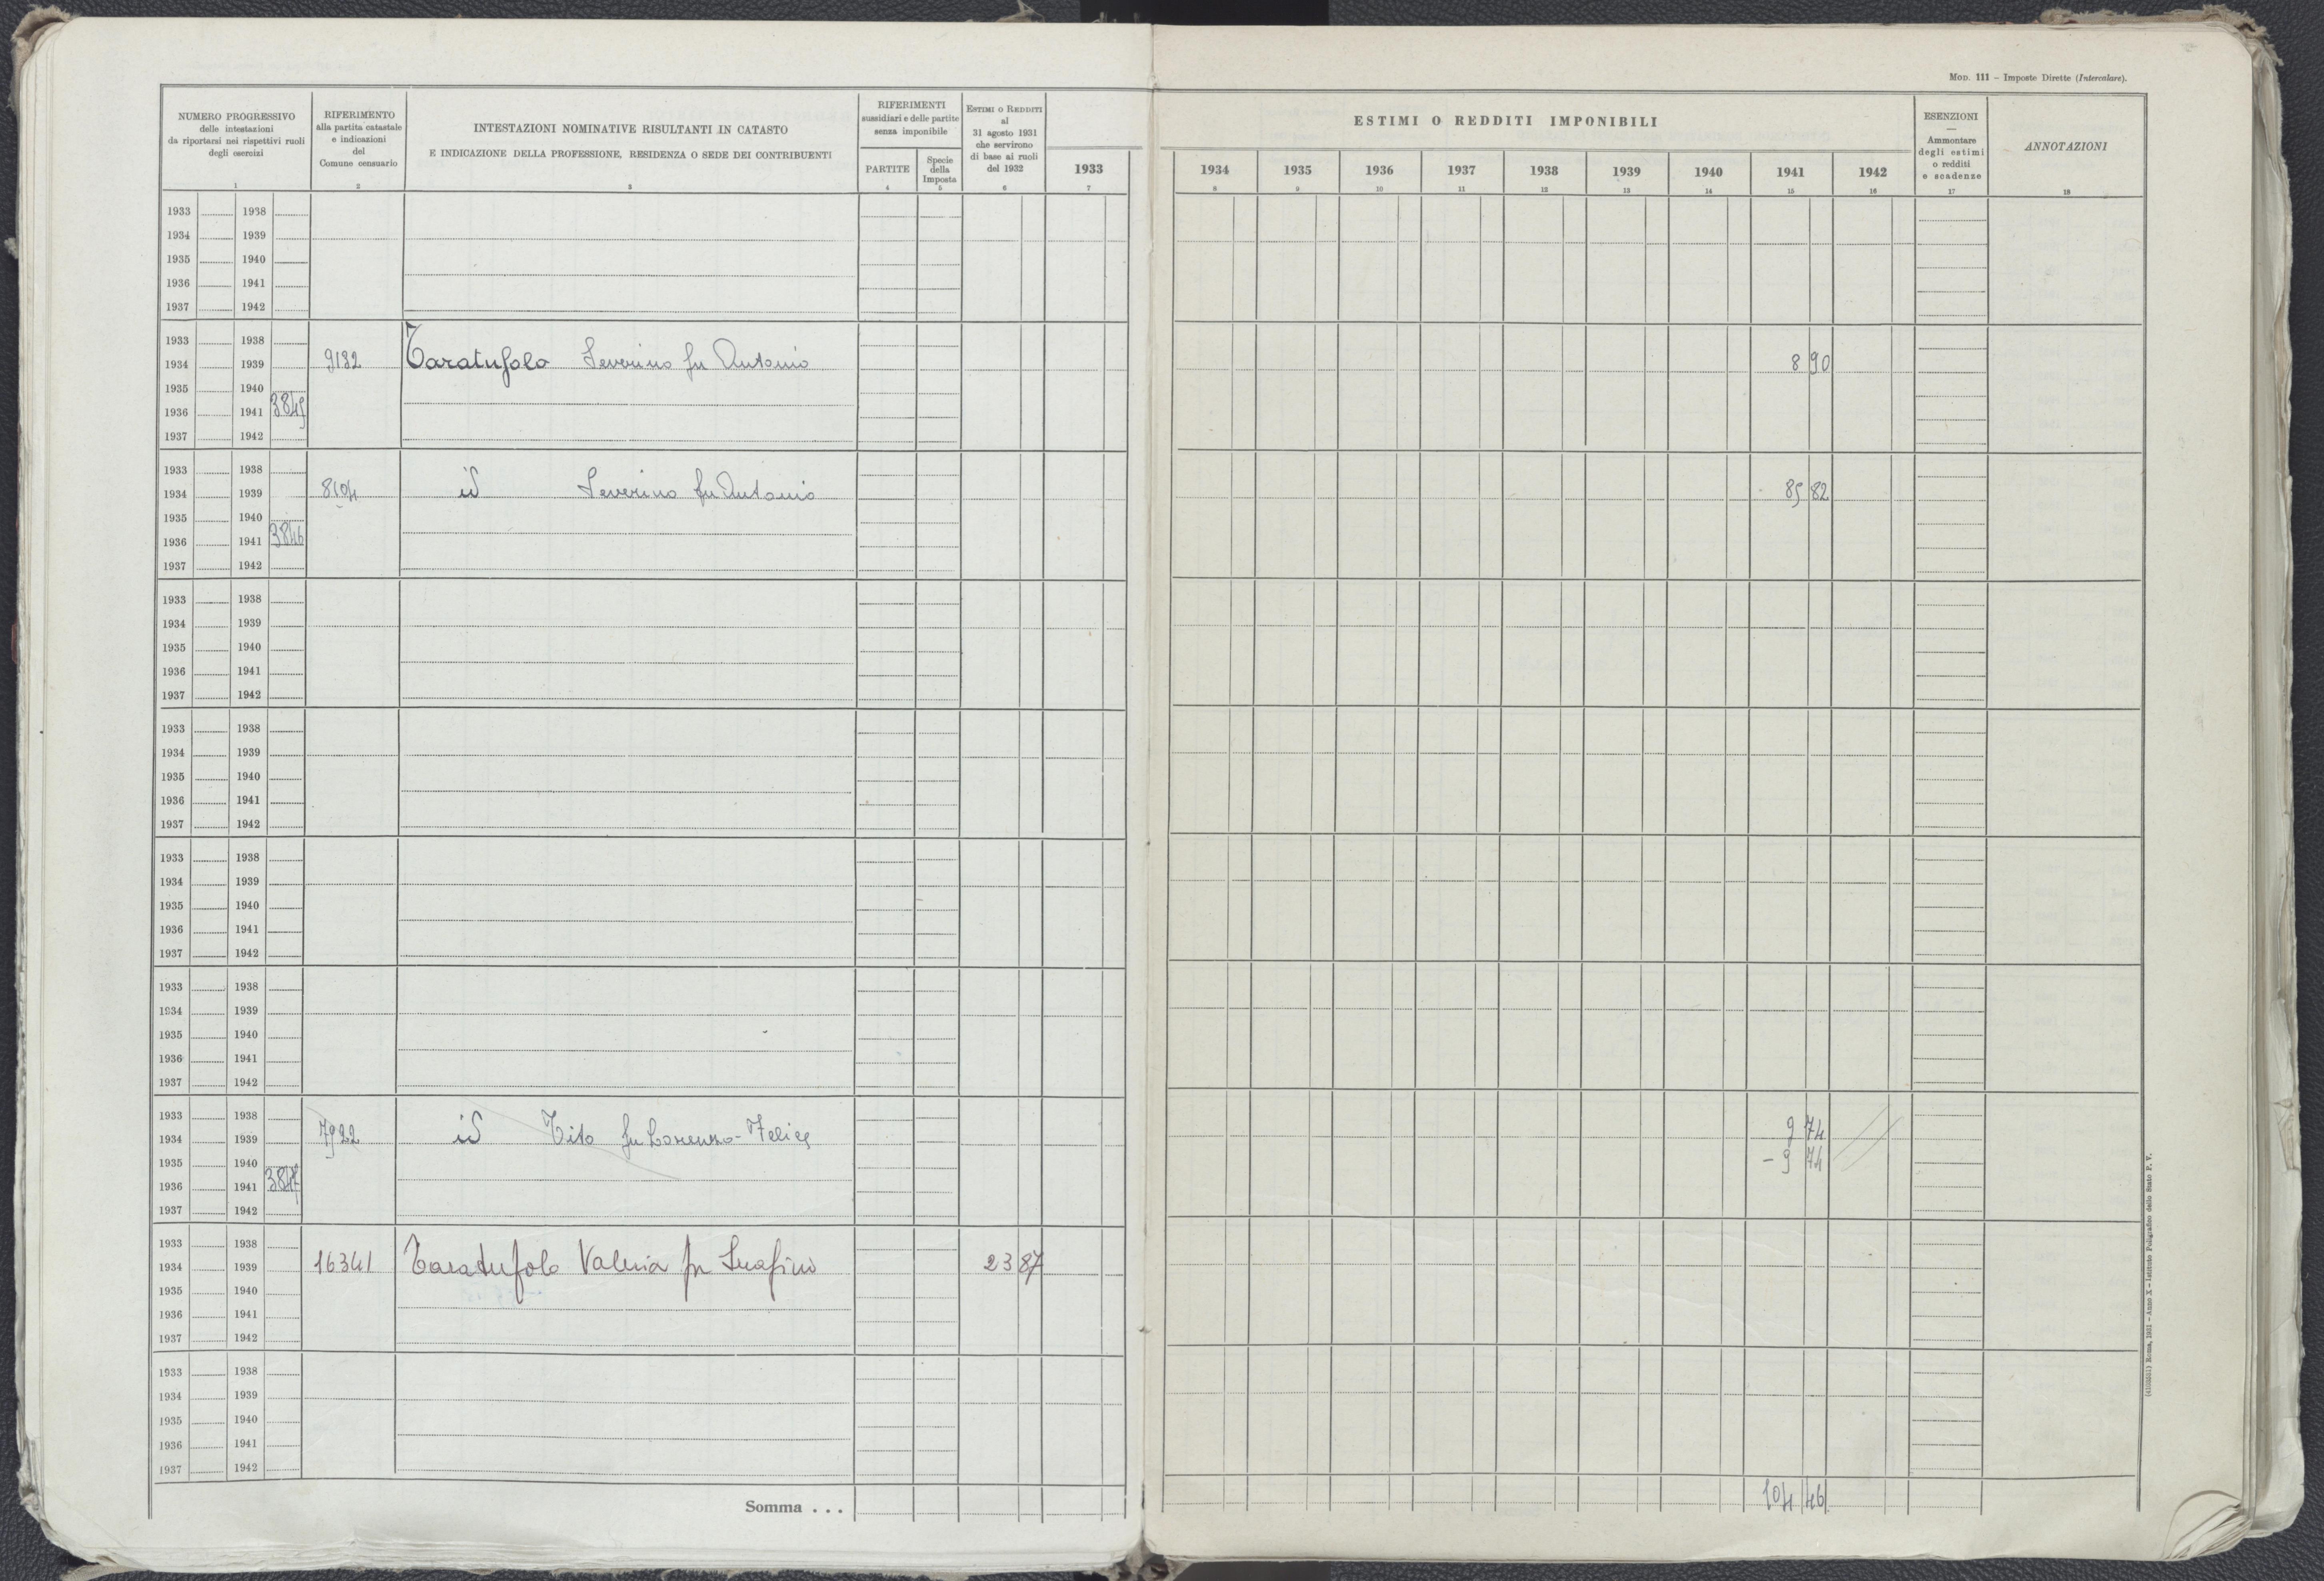 MOD. 111 – Imposte Dirette (Intercalare).
NUMERO PROGRESSIVO
delle intestazioni
da riportarsi nei rispettivi ruoli
degli esercizi
1
RIFERIMENTO
alla partita catastale
e indicazioni
del
Comune censuario
2
INTESTAZIONI NOMINATIVE RISULTANTI IN CATASTO
E INDICAZIONE DELLA PROFESSIONE, RESIDENZA O SEDE DEI CONTRIBUENTI
3
RIFERIMENTI
sussidiari e delle partite
senza imponibile
PARTITE
4
Specie
della
Imposta
5
ESTIMI O REDDITI
al
31 agosto 1931
che servirono
di base ai ruoli
del 1932
6
1933
7
ESTIMI O REDDITI IMPONIBILI
1934 1935 1936 1937 1938 1939 1940 1941 1942
8 9 10 11 12 13 14 15 16
ESENZIONI
—
Ammontare
degli estimi
o redditi
e scadenze
17
ANNOTAZIONI
18
1933 1938
1934 1939
1935 1940
1936 1941
1937 1942
1933 1938
1934 1939 9132 Taratufolo Severino fu Antonio 8 90
1935 1940
1936 1941 3845
1937 1942
1933 1938
1934 1939 8104 id Severino fu Antonio 85 82
1935 1940
1936 1941 3846
1937 1942
1933 1938
1934 1939
1935 1940
1936 1941
1937 1942
1933 1938
1934 1939
1935 1940
1936 1941
1937 1942
1933 1938
1934 1939
1935 1940
1936 1941
1937 1942
1933 1938
1934 1939
1935 1940
1936 1941
1937 1942
1933 1938
1934 1939 7922 id Tito fu Lorenzo-Felice 9 74
1935 1940 – 9 74
1936 1941 3847
1937 1942
1933 1938
1934 1939 16341 Taratufolo Valeria fu Serafino 23 87
1935 1940
1936 1941
1937 1942
1933 1938
1934 1939
1935 1940
1936 1941
1937 1942
Somma . . . 104 46
(4103351) Roma, 1931 – Anno X – Istituto Poligrafico dello Stato P. V.